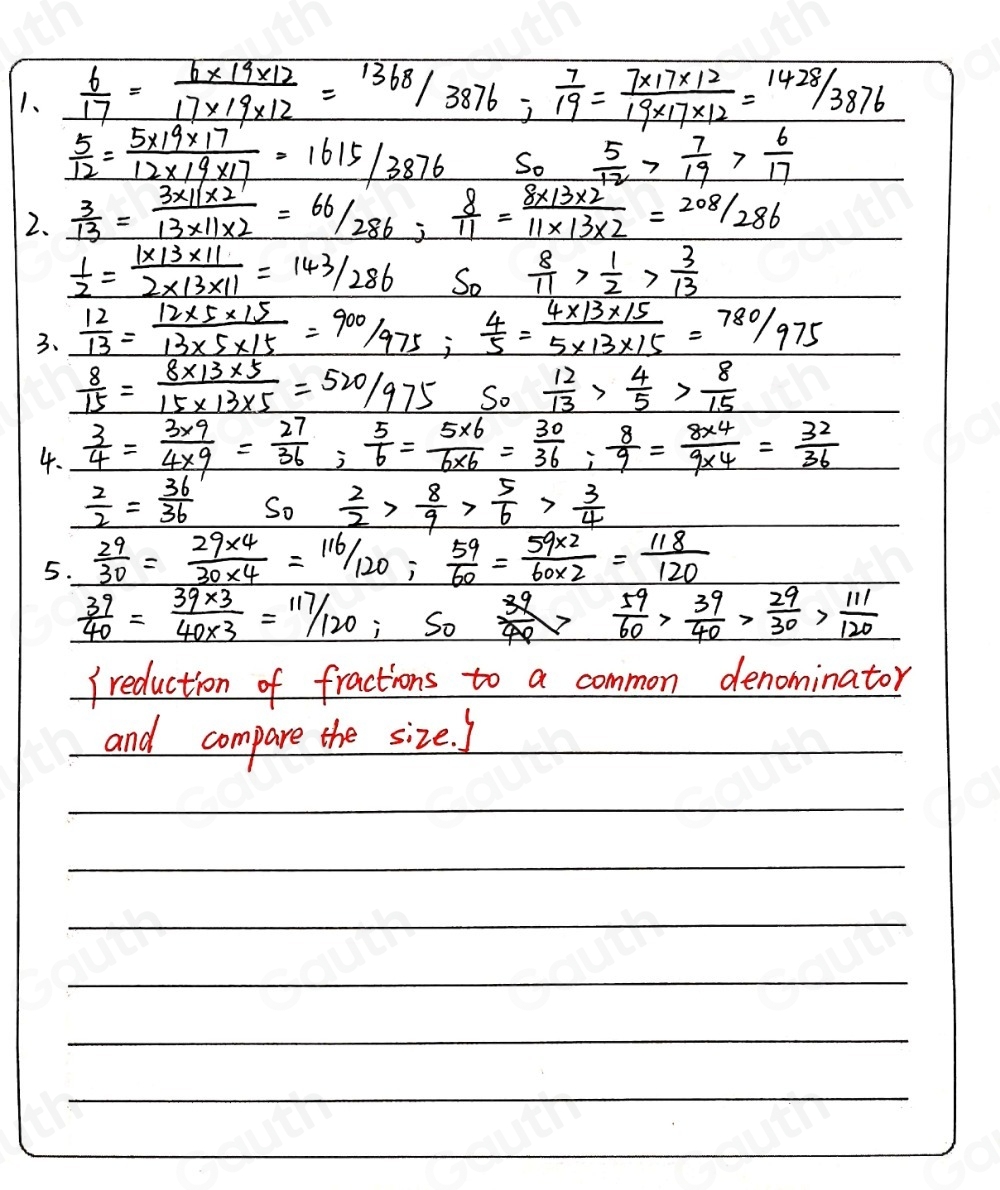 1、 6/17 = 6×19×12/17×19×12 = 1368/3876 ; 7/19 = 7×17×12/19×17×12 = 1428/3876
5/12 = 5×19×17/12×19×17 = 1615/3876 So 5/12 > 7/19 > 6/17
2、 3/13 = 3×11×2/13×11×2 = 66/286 ; 8/11 = 8×13×2/11×13×2 = 208/286
1/2 = 1×13×11/2×13×11 = 143/286 So 8/11 > 1/2 > 3/13
3、 12/13 = 12×5×15/13×5×15 = 900/975 ; 4/5 = 4×13×15/5×13×15 = 780/975
8/15 = 8×13×5/15×13×5 = 520/975 So 12/13 > 4/5 > 8/15
4、 3/4 = 3×9/4×9 = 27/36 ; 5/6 = 5×6/6×6 = 30/36 ; 8/9 = 8×4/9×4 = 32/36
2/2 = 36/36 So 2/2 > 8/9 > 5/6 > 3/4
5. 29/30 = 29×4/30×4 = 116/120 ; 59/60 = 59×2/60×2 = 118/120
39/40 = 39×3/40×3 = 117/120 ; So 39/40 > 59/60 > 39/40 > 29/30 > 111/120
{reduction of fractions to a common denominator
and compare the size.}